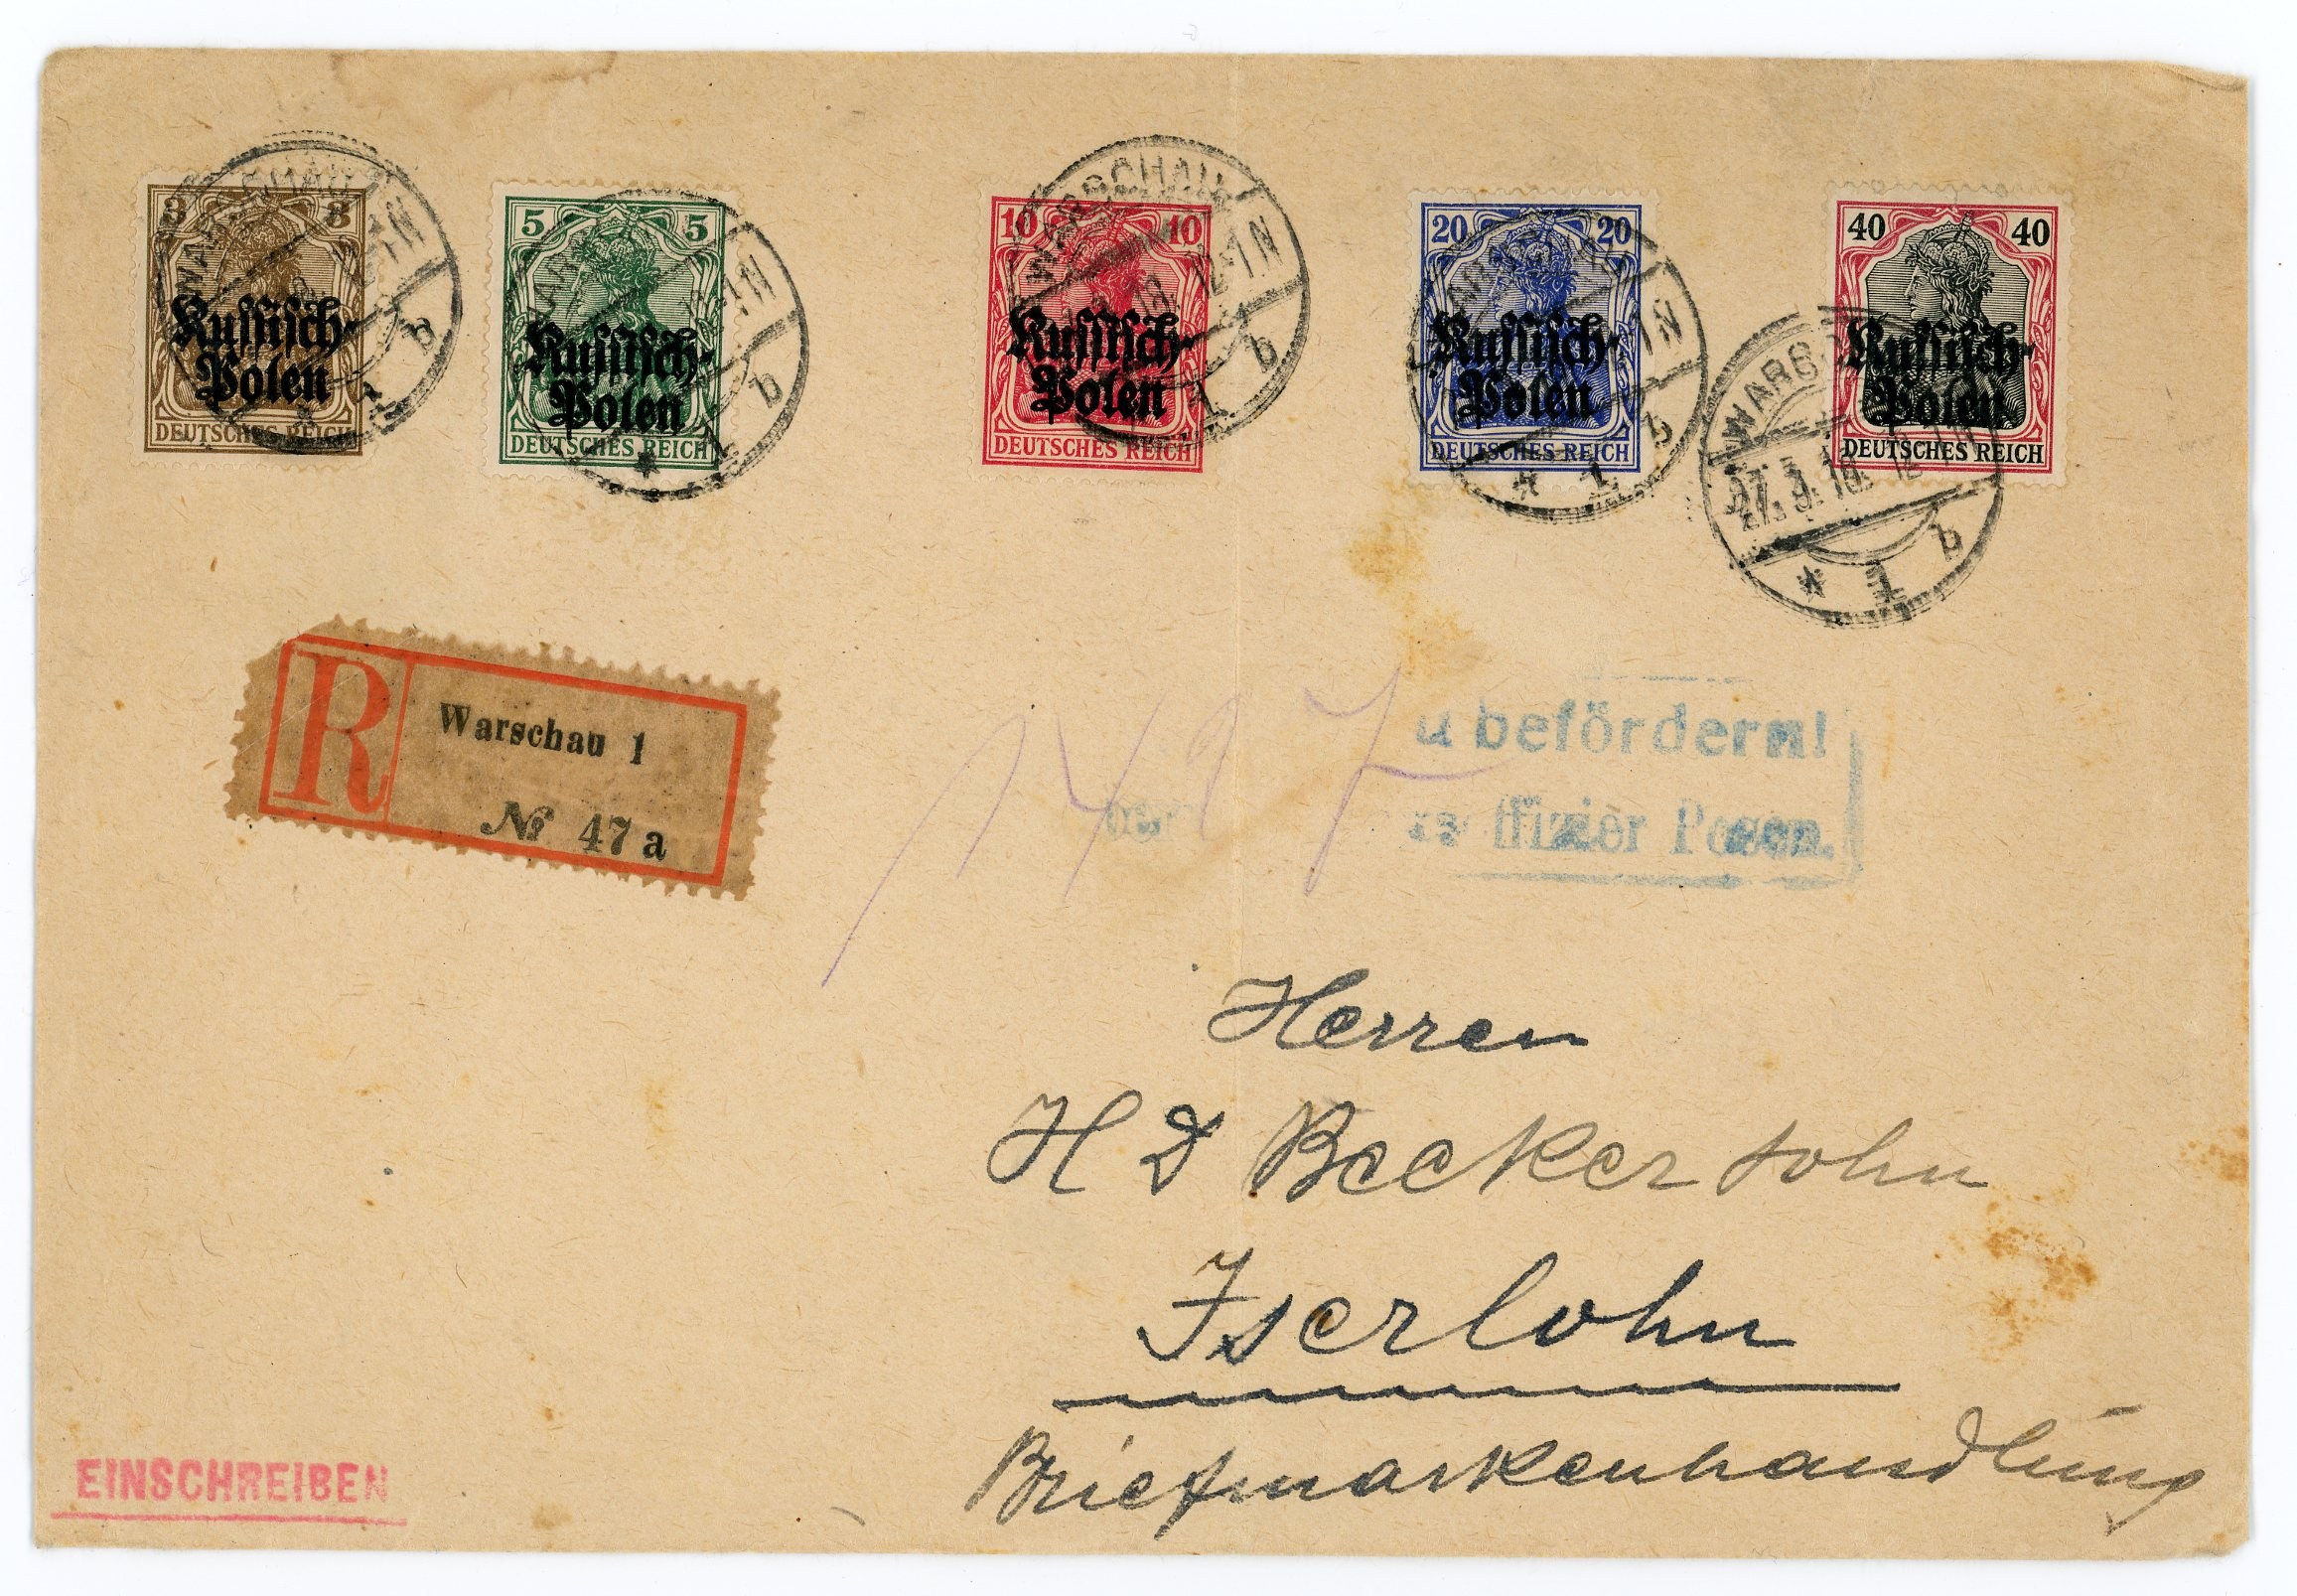 3 3
Russisch-
Polen
DEUTSCHES REICH
WARSCHAU
b
* 1
5 5
Russisch-
Polen
DEUTSCHES REICH
b
* 1
10 10
Russisch-
Polen
DEUTSCHES REICH
WARSCHAU
12-1 N
b
1
20 20
Russisch-
Polen
DEUTSCHES REICH
b
* 1
40 40
Russisch-
Polen
DEUTSCHES REICH
b
* 1
R
Warschau 1
№ 47a
befördern!
Posen.
Herren
H D Beckersohn
Iserlohn
Briefmarkenhandlung
EINSCHREIBEN